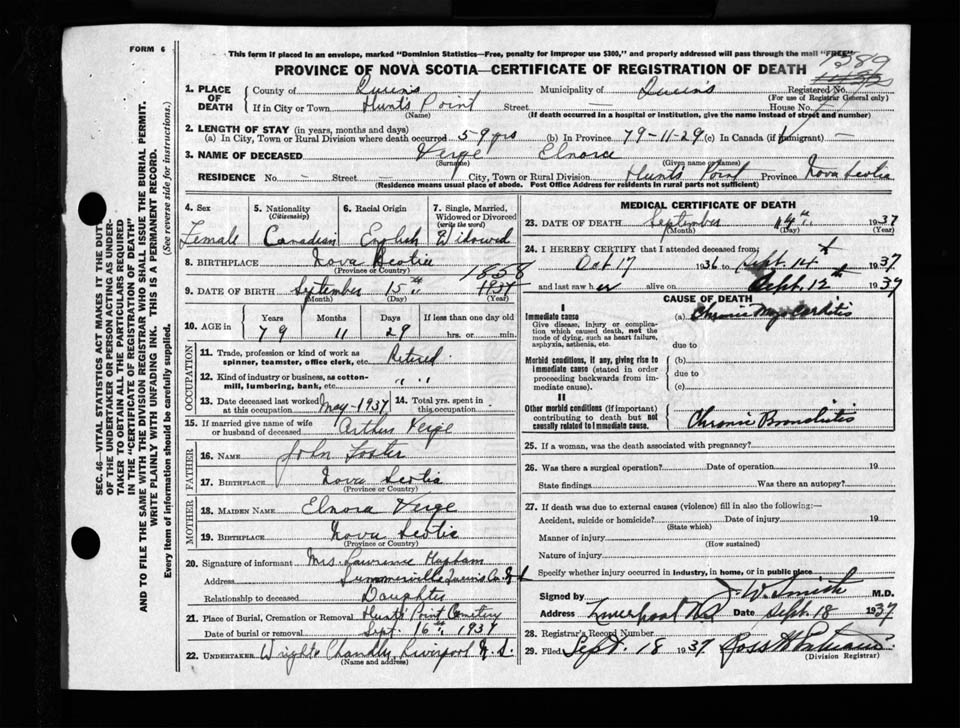 FORM 6
This form if placed in an envelope, marked "Dominion Statistics—Free, penalty for improper use $300," and properly addressed will pass through the mail "FREE"
1589
PROVINCE OF NOVA SCOTIA—CERTIFICATE OF REGISTRATION OF DEATH
1. PLACE OF DEATH County of Queens Municipality of Queens Registered No.
(For use of Registrar General only)
If in City or Town Hunts Point Street — House No.
(Name) (If death occurred in a hospital or institution, give the name instead of street and number)
2. LENGTH OF STAY (in years, months and days)
(a) In City, Town or Rural Division where death occurred 59 yrs (b) In Province 79-11-29 (c) In Canada (if immigrant) —
3. NAME OF DECEASED Verge Elnora
(Surname) (Given name or names)
RESIDENCE No. — Street — City, Town or Rural Division Hunts Point Province Nova Scotia
(Residence means usual place of abode. Post Office Address for residents in rural parts not sufficient)
4. Sex 5. Nationality 6. Racial Origin 7. Single, Married, Widowed or Divorced
(Citizenship) (write the word)
Female Canadian English Widowed
8. BIRTHPLACE Nova Scotia
(Province or Country)
1858
9. DATE OF BIRTH September 15th 1937
(Month) (Day) (Year)
10. AGE in Years Months Days If less than one day old
79 11 29 hrs. or min.
OCCUPATION
11. Trade, profession or kind of work as spinner, teamster, office clerk, etc. Retired
12. Kind of industry or business, as cotton-mill, lumbering, bank, etc. " "
13. Date deceased last worked at this occupation May-1937 14. Total yrs. spent in this occupation
15. If married give name of wife or husband of deceased Arthur Verge
FATHER
16. NAME John Foster
17. BIRTHPLACE Nova Scotia
(Province or Country)
MOTHER
18. MAIDEN NAME Elnora Verge
19. BIRTHPLACE Nova Scotia
(Province or Country)
20. Signature of informant Mrs. Lawrence
Address Summerville Queens Co. N S
Relationship to deceased Daughter
21. Place of Burial, Cremation or Removal Hunts Point Cemetery
Date of burial or removal Sept. 16th 1937
22. UNDERTAKER Wright Chandler Liverpool N. S.
(Name and address)
MEDICAL CERTIFICATE OF DEATH
23. DATE OF DEATH September 14th 1937
(Month) (Day) (Year)
24. I HEREBY CERTIFY that I attended deceased from:
Oct 17 1936 to Sept. 14th 1937
and last saw her alive on Sept. 12th 1937
CAUSE OF DEATH
I
Immediate cause (a) Chronic Myocarditis
Give disease, injury or complication which caused death, not the mode of dying, such as heart failure, asphyxia, asthenia, etc.
due to
Morbid conditions, if any, giving rise to immediate cause (stated in order proceeding backwards from immediate cause).
(b)
due to
(c)
II
Other morbid conditions (if important) contributing to death but not causally related to immediate cause.
Chronic Bronchitis
25. If a woman, was the death associated with pregnancy?
26. Was there a surgical operation? Date of operation 19
State findings Was there an autopsy?
27. If death was due to external causes (violence) fill in also the following:—
Accident, suicide or homicide? Date of injury 19
(State which)
Manner of injury
(How sustained)
Nature of injury
Specify whether injury occurred in industry, in home, or in public place
Signed by J. W. Smith M.D.
Address Liverpool NS Date Sept. 18 1937
28. Registrar's Record Number
29. Filed Sept. 18 1937 Ross
(Division Registrar)
SEC. 46—VITAL STATISTICS ACT MAKES IT THE DUTY
OF THE UNDERTAKER OR PERSON ACTING AS UNDER-
TAKER TO OBTAIN ALL THE PARTICULARS REQUIRED
IN THE "CERTIFICATE OF REGISTRATION OF DEATH"
AND TO FILE THE SAME WITH THE DIVISION REGISTRAR WHO SHALL ISSUE THE BURIAL PERMIT.
WRITE PLAINLY WITH UNFADING INK. THIS IS A PERMANENT RECORD.
Every item of information should be carefully supplied. (See reverse side for instructions.)